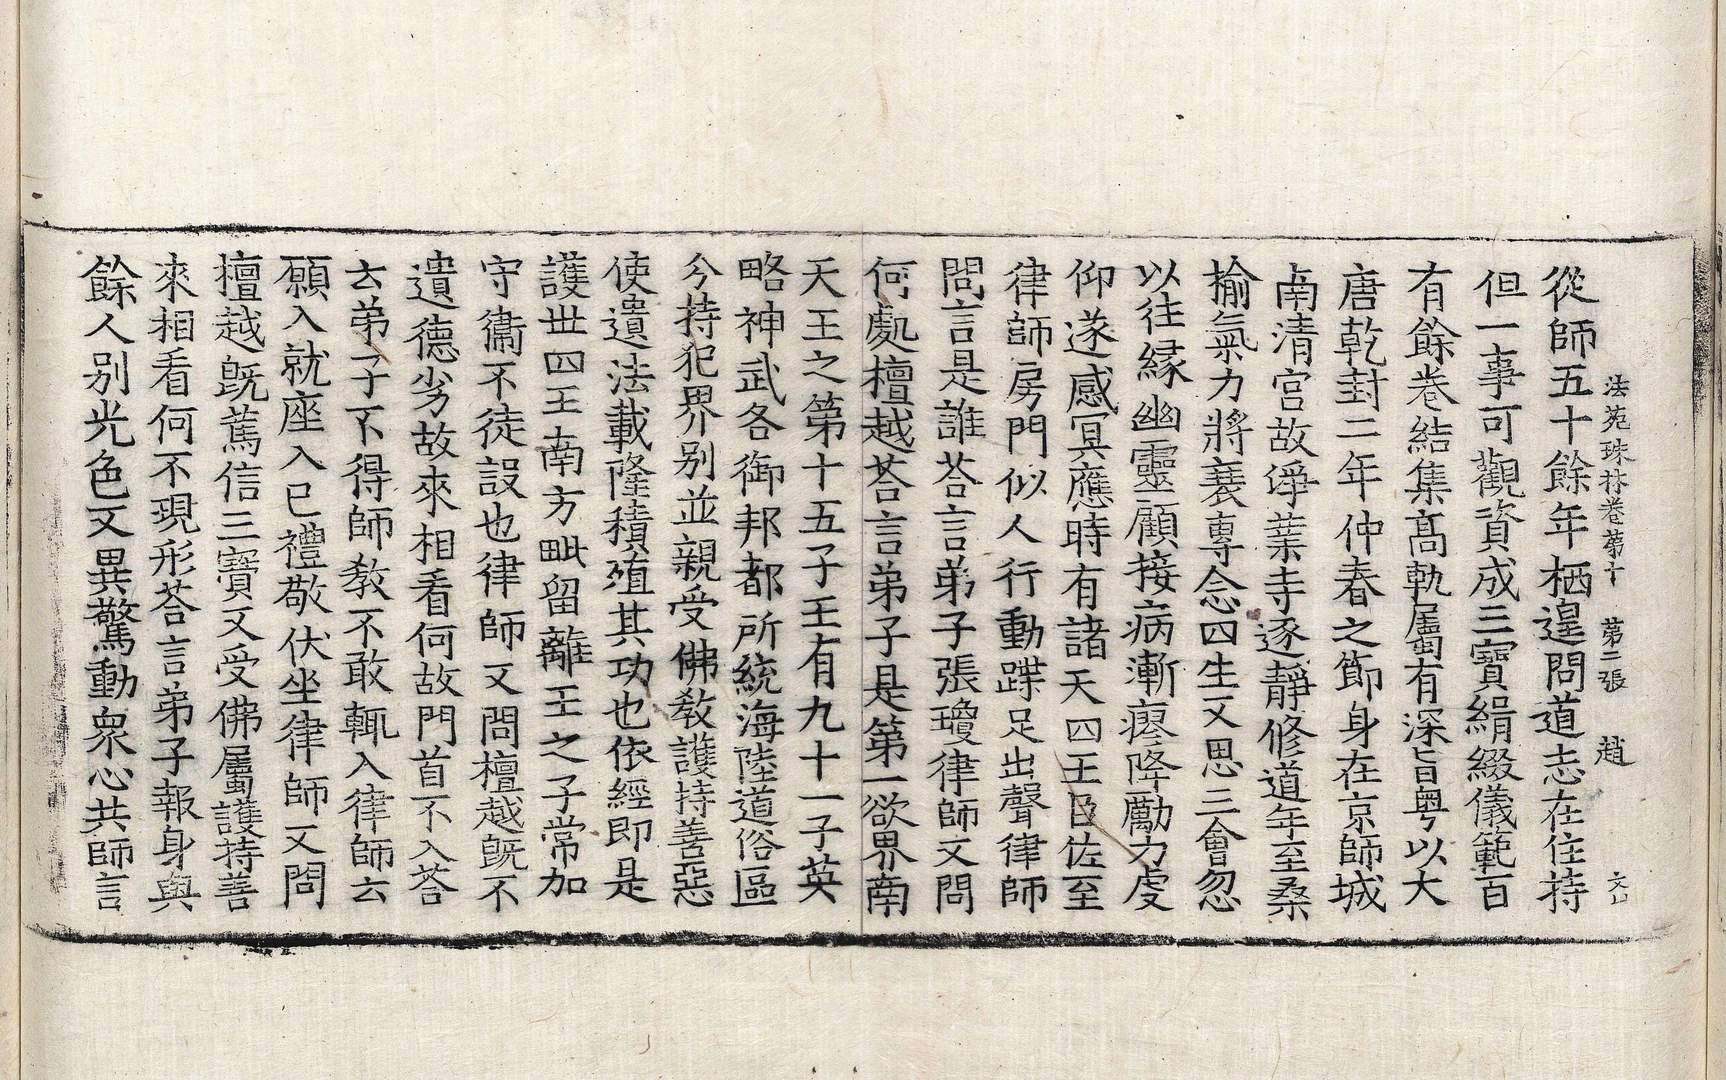 法苑珠林卷第十 第二張 趙 文
從師五十餘年栖遑問道志在住持
但一事可觀資成三寶緝綴儀範百
有餘卷結集高軌屬有深旨粤以大
唐乾封二年仲春之節身在京師城
南清宮故淨業寺逐靜修道年至桑
榆氣力將衰專念四生又思三會忽
以往緣幽靈顧接病漸瘳降勵力虔
仰遂感冥應時有諸天四王臣佐至
律師房門似人行動蹀足出聲律師
問言是誰荅言弟子張瓊律師又問
何處檀越荅言弟子是第一欲界南
天王之第十五子王有九十一子英
略神武各御邦都所統海陸道俗區
分持犯界别並親受佛教護持善惡
使遺法載隆積殖其功也依經即是
護世四王南方毗留離王之子常加
守衞不徒設也律師又問檀越旣不
遺德劣故來相看何故門首不入荅
云弟子不得師教不敢輒入律師云
願入就座入已禮敬伏坐律師又問
檀越旣篤信三寶又受佛屬護持善
來相看何不現形荅言弟子報身與
餘人别光色又異驚動衆心共師言